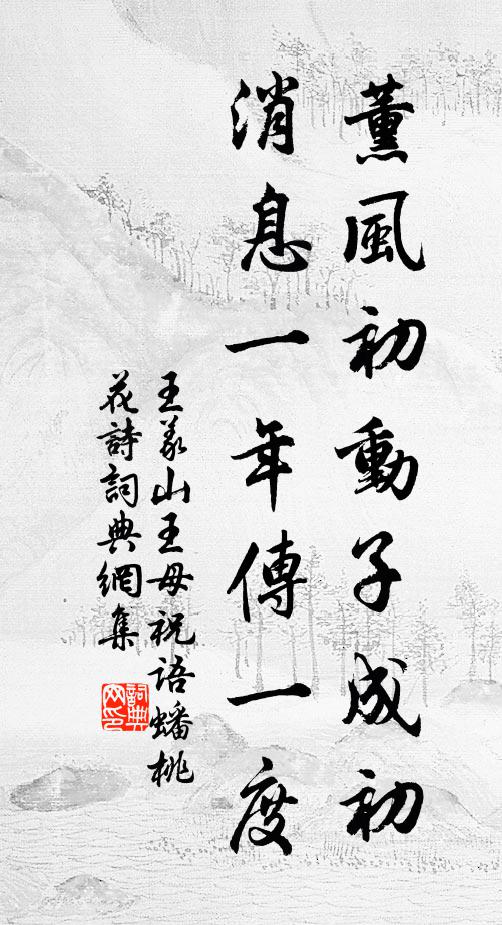 薰風初動子成初
消息一年傳一度
王義山王母祝語蟠桃
花詩詞典網集
詞典網印